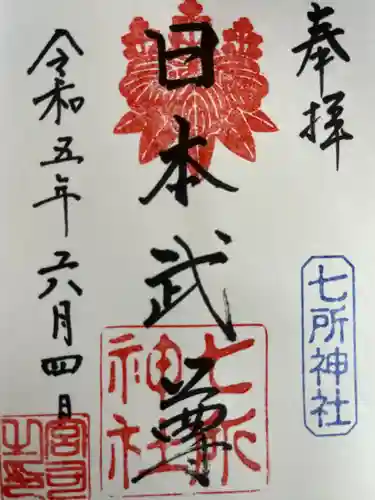 奉拝
七所神社
日本武尊
七所神社
令和五年六月四日
宮司之印